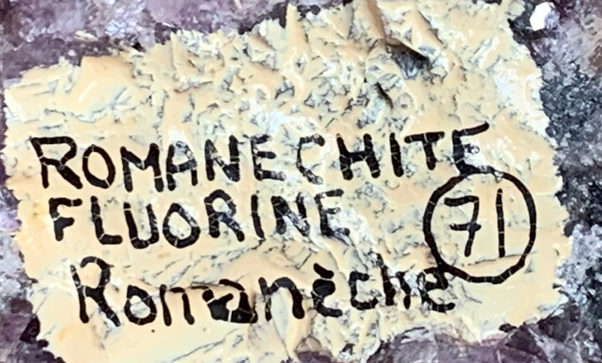 ROMANECHITE
FLUORINE 71
Romanèche